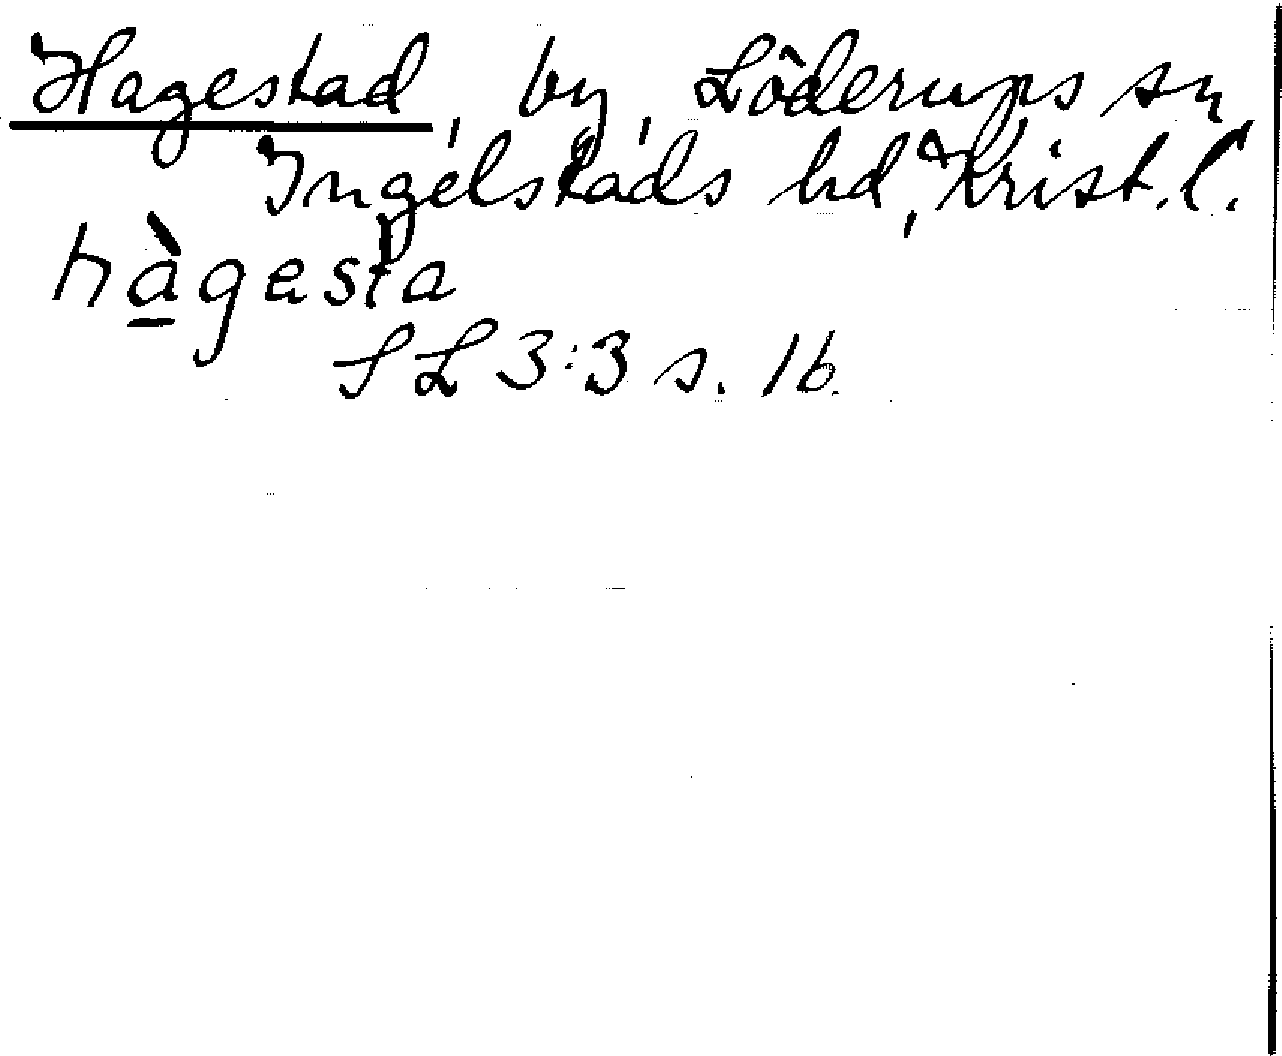 Hagestad, by, Löderups sn,
Ingelstads hd, Krist. l.
hà̠gesta
SL 3:3 s. 16.